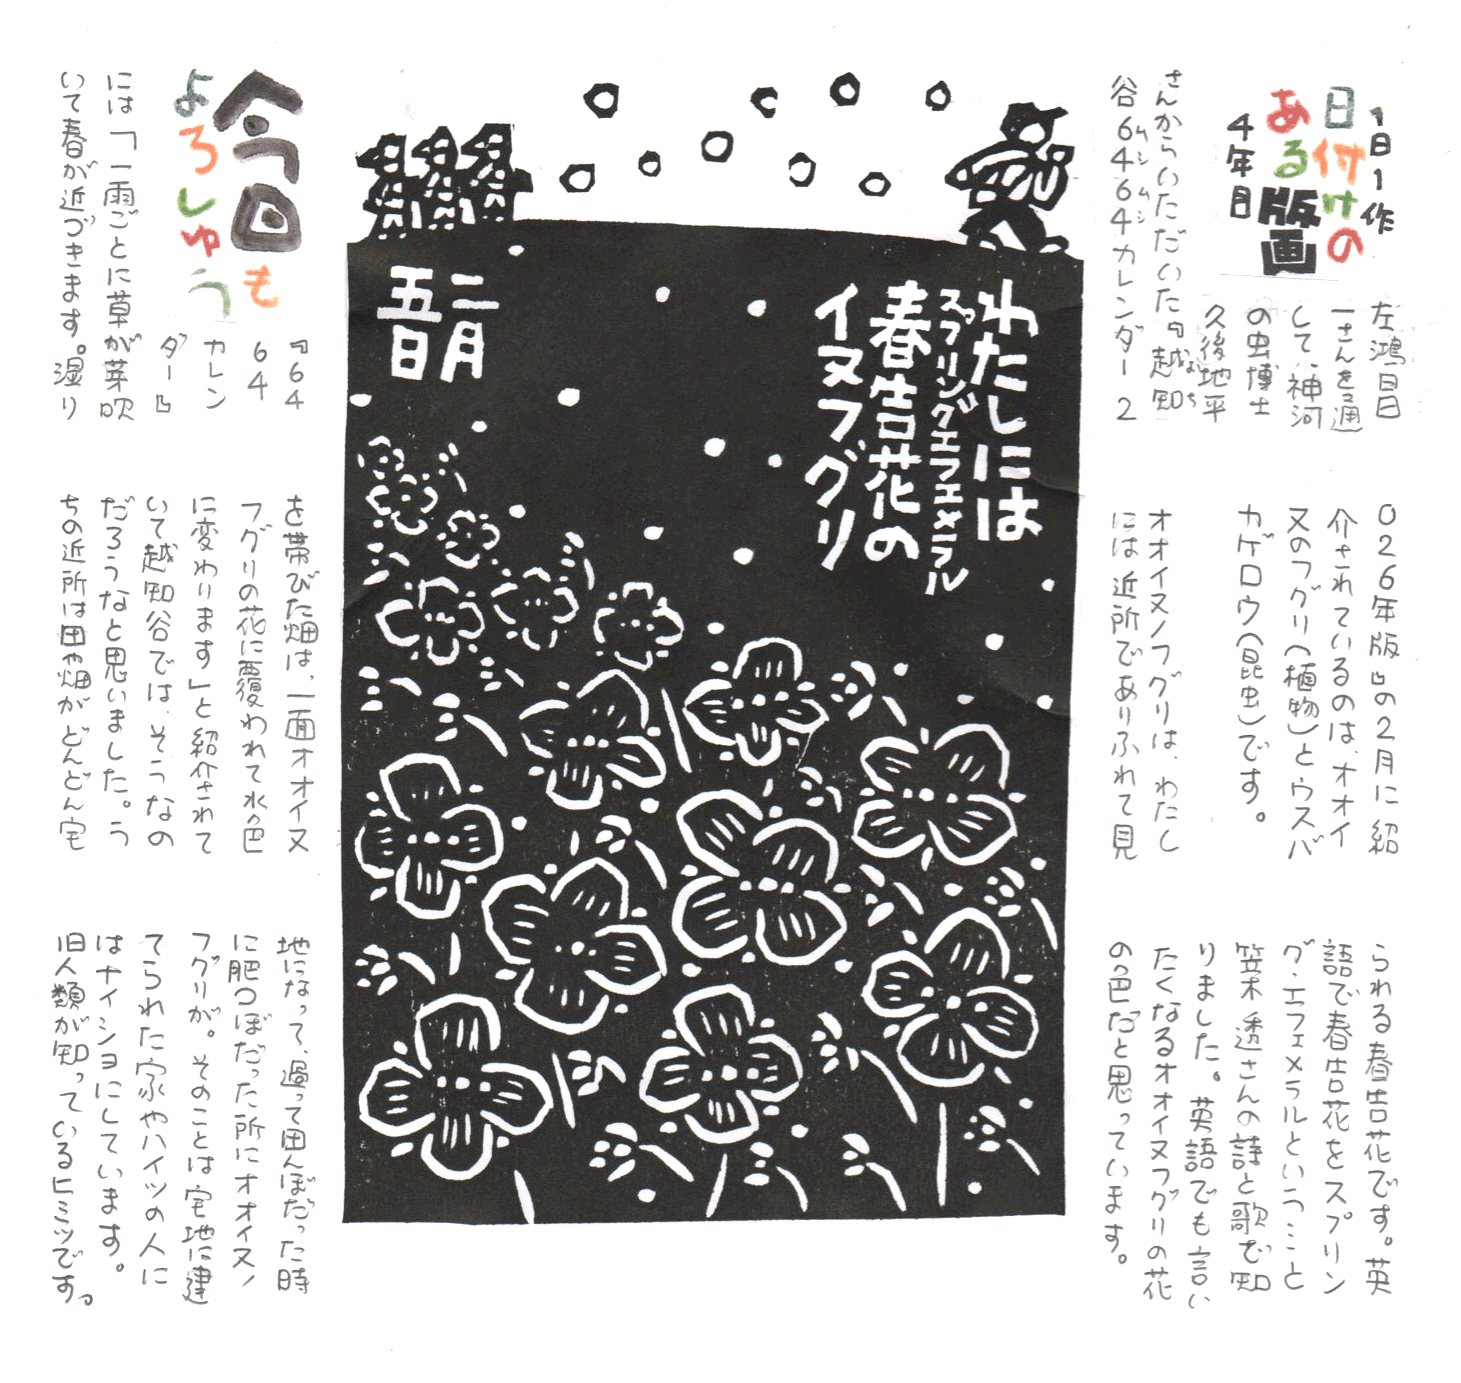 1日1作
日付けの
ある版画
4年目
左鴻昌
一さんを通
して、神河
の虫博士
久後地平
さんからいただいた『越知
谷6464カレンダー2
ムシムシ
026年版』の2月に紹
介されているのは、オオイ
ヌのフグリ(植物)とウスバ
カゲロウ(昆虫)です。
オオイヌノフグリは、わたし
には近所でありふれて見
られる春告花です。英
語で春告花をスプリン
グ・エフェメラルということ
笠木透さんの詩と歌で知
りました。英語でも言い
たくなるオオイヌフグリの花
の色だと思っています。
わたしには
スプリングエフェメラル
春告花の
イヌフグリ
二月
五日
今回も
よろしゅう
『64
64
カレン
ダー』
には「一雨ごとに草が芽吹
いて春が近づきます。湿り
を帯びた畑は、一面オオイヌ
フグリの花に覆われて水色
に変わります」と紹介されて
いて越知谷では、そうなの
だろうなと思いました。う
ちの近所は田や畑がどんどん宅
地になって、過って田んぼだった時
に肥つぼだった所にオオイヌノ
フグリが。そのことは宅地に建
てられた家やハイツの人に
はナイショにしています。
旧人類が知っているヒミツです。